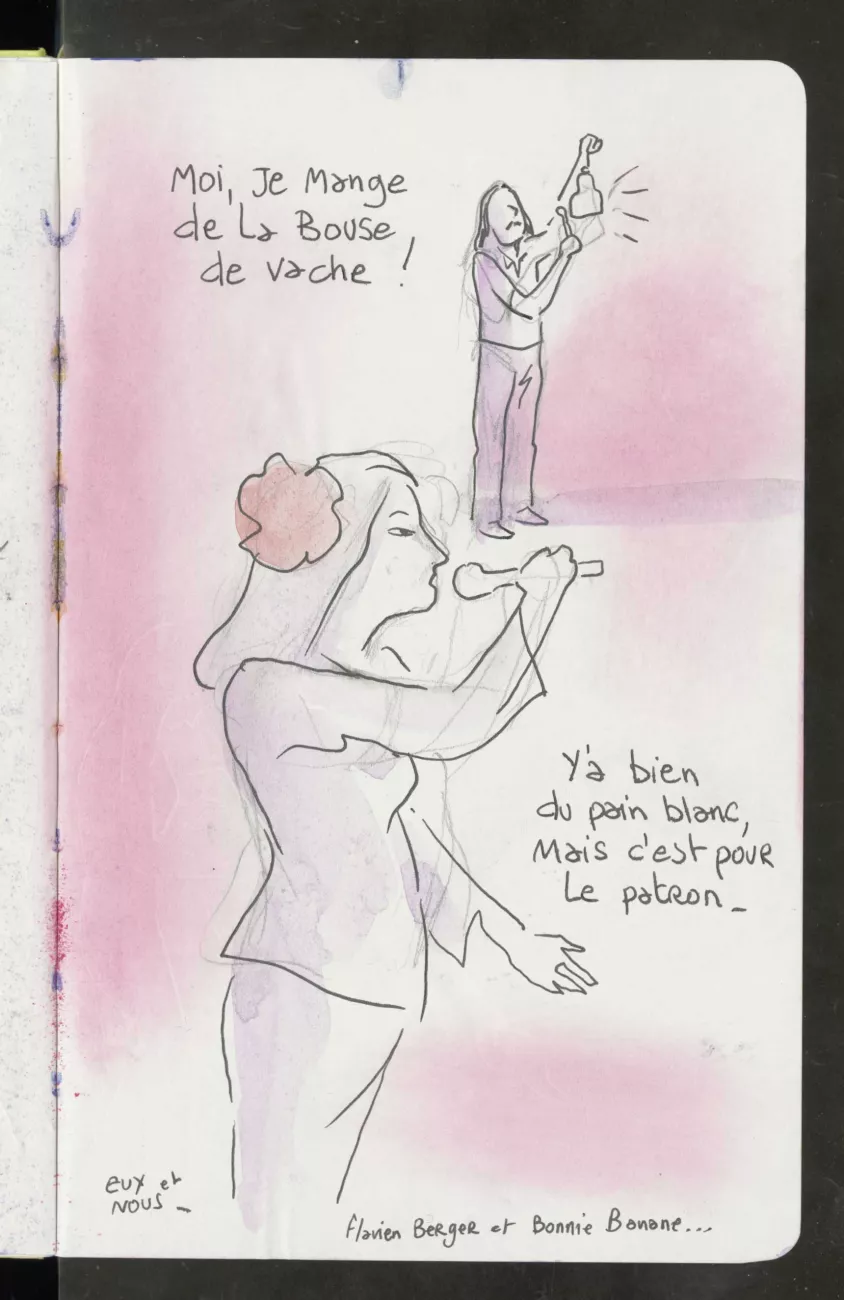 Moi, Je Mange
de La Bouse
de vache !
Y'a bien
du pain blanc,
Mais c'est pour
Le patron_
EUX et
NOUS_
Flavien Berger et Bonnie Banane...